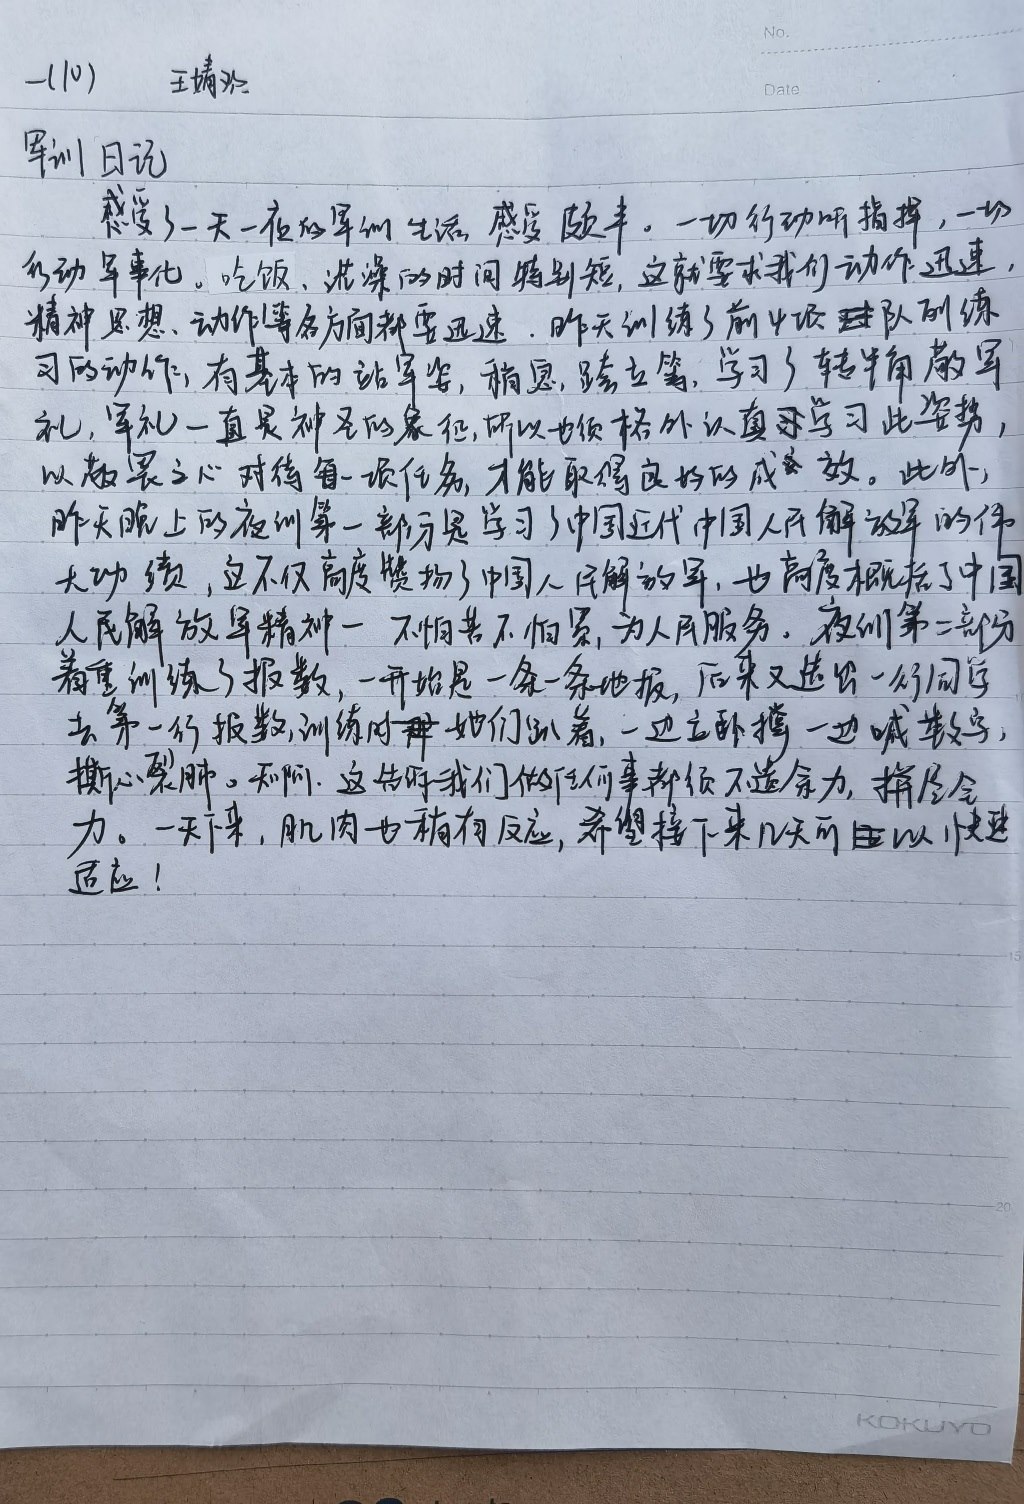 No.
Date
一(10) 王婧
军训日记
感受了一天一夜的军训生活,感受颇丰。一切行动听指挥,一切
行动军事化。吃饭、洗澡的时间特别短,这就要求我们动作迅速,
精神思想、动作等各方面都要迅速。昨天训练了前4项队列练
习的动作,有基本的站军姿,稍息,跨立等,学习了转半角敬军
礼,军礼一直是神圣的象征,所以也须格外认真学习此姿势,
以敬畏之心对待每一项任务,才能取得良好的成效。此外,
昨天晚上的夜训第一部分是学习了中国近代中国人民解放军的伟
大功绩,这不仅高度赞扬了中国人民解放军,也高度概括了中国
人民解放军精神一不怕苦不怕累,为人民服务。夜训第二部分
着重训练了报数,一开始是一条一条地报,后来又选出一行同学
去第一行报数,训练时她们趴着,一边立卧撑一边喊数字,
撕心裂肺。这告诉我们做任何事都须不遗余力,拼尽全
力。一天下来,肌肉也稍有反应,希望接下来几天可以快速
适应!
15
20
KOKUYO